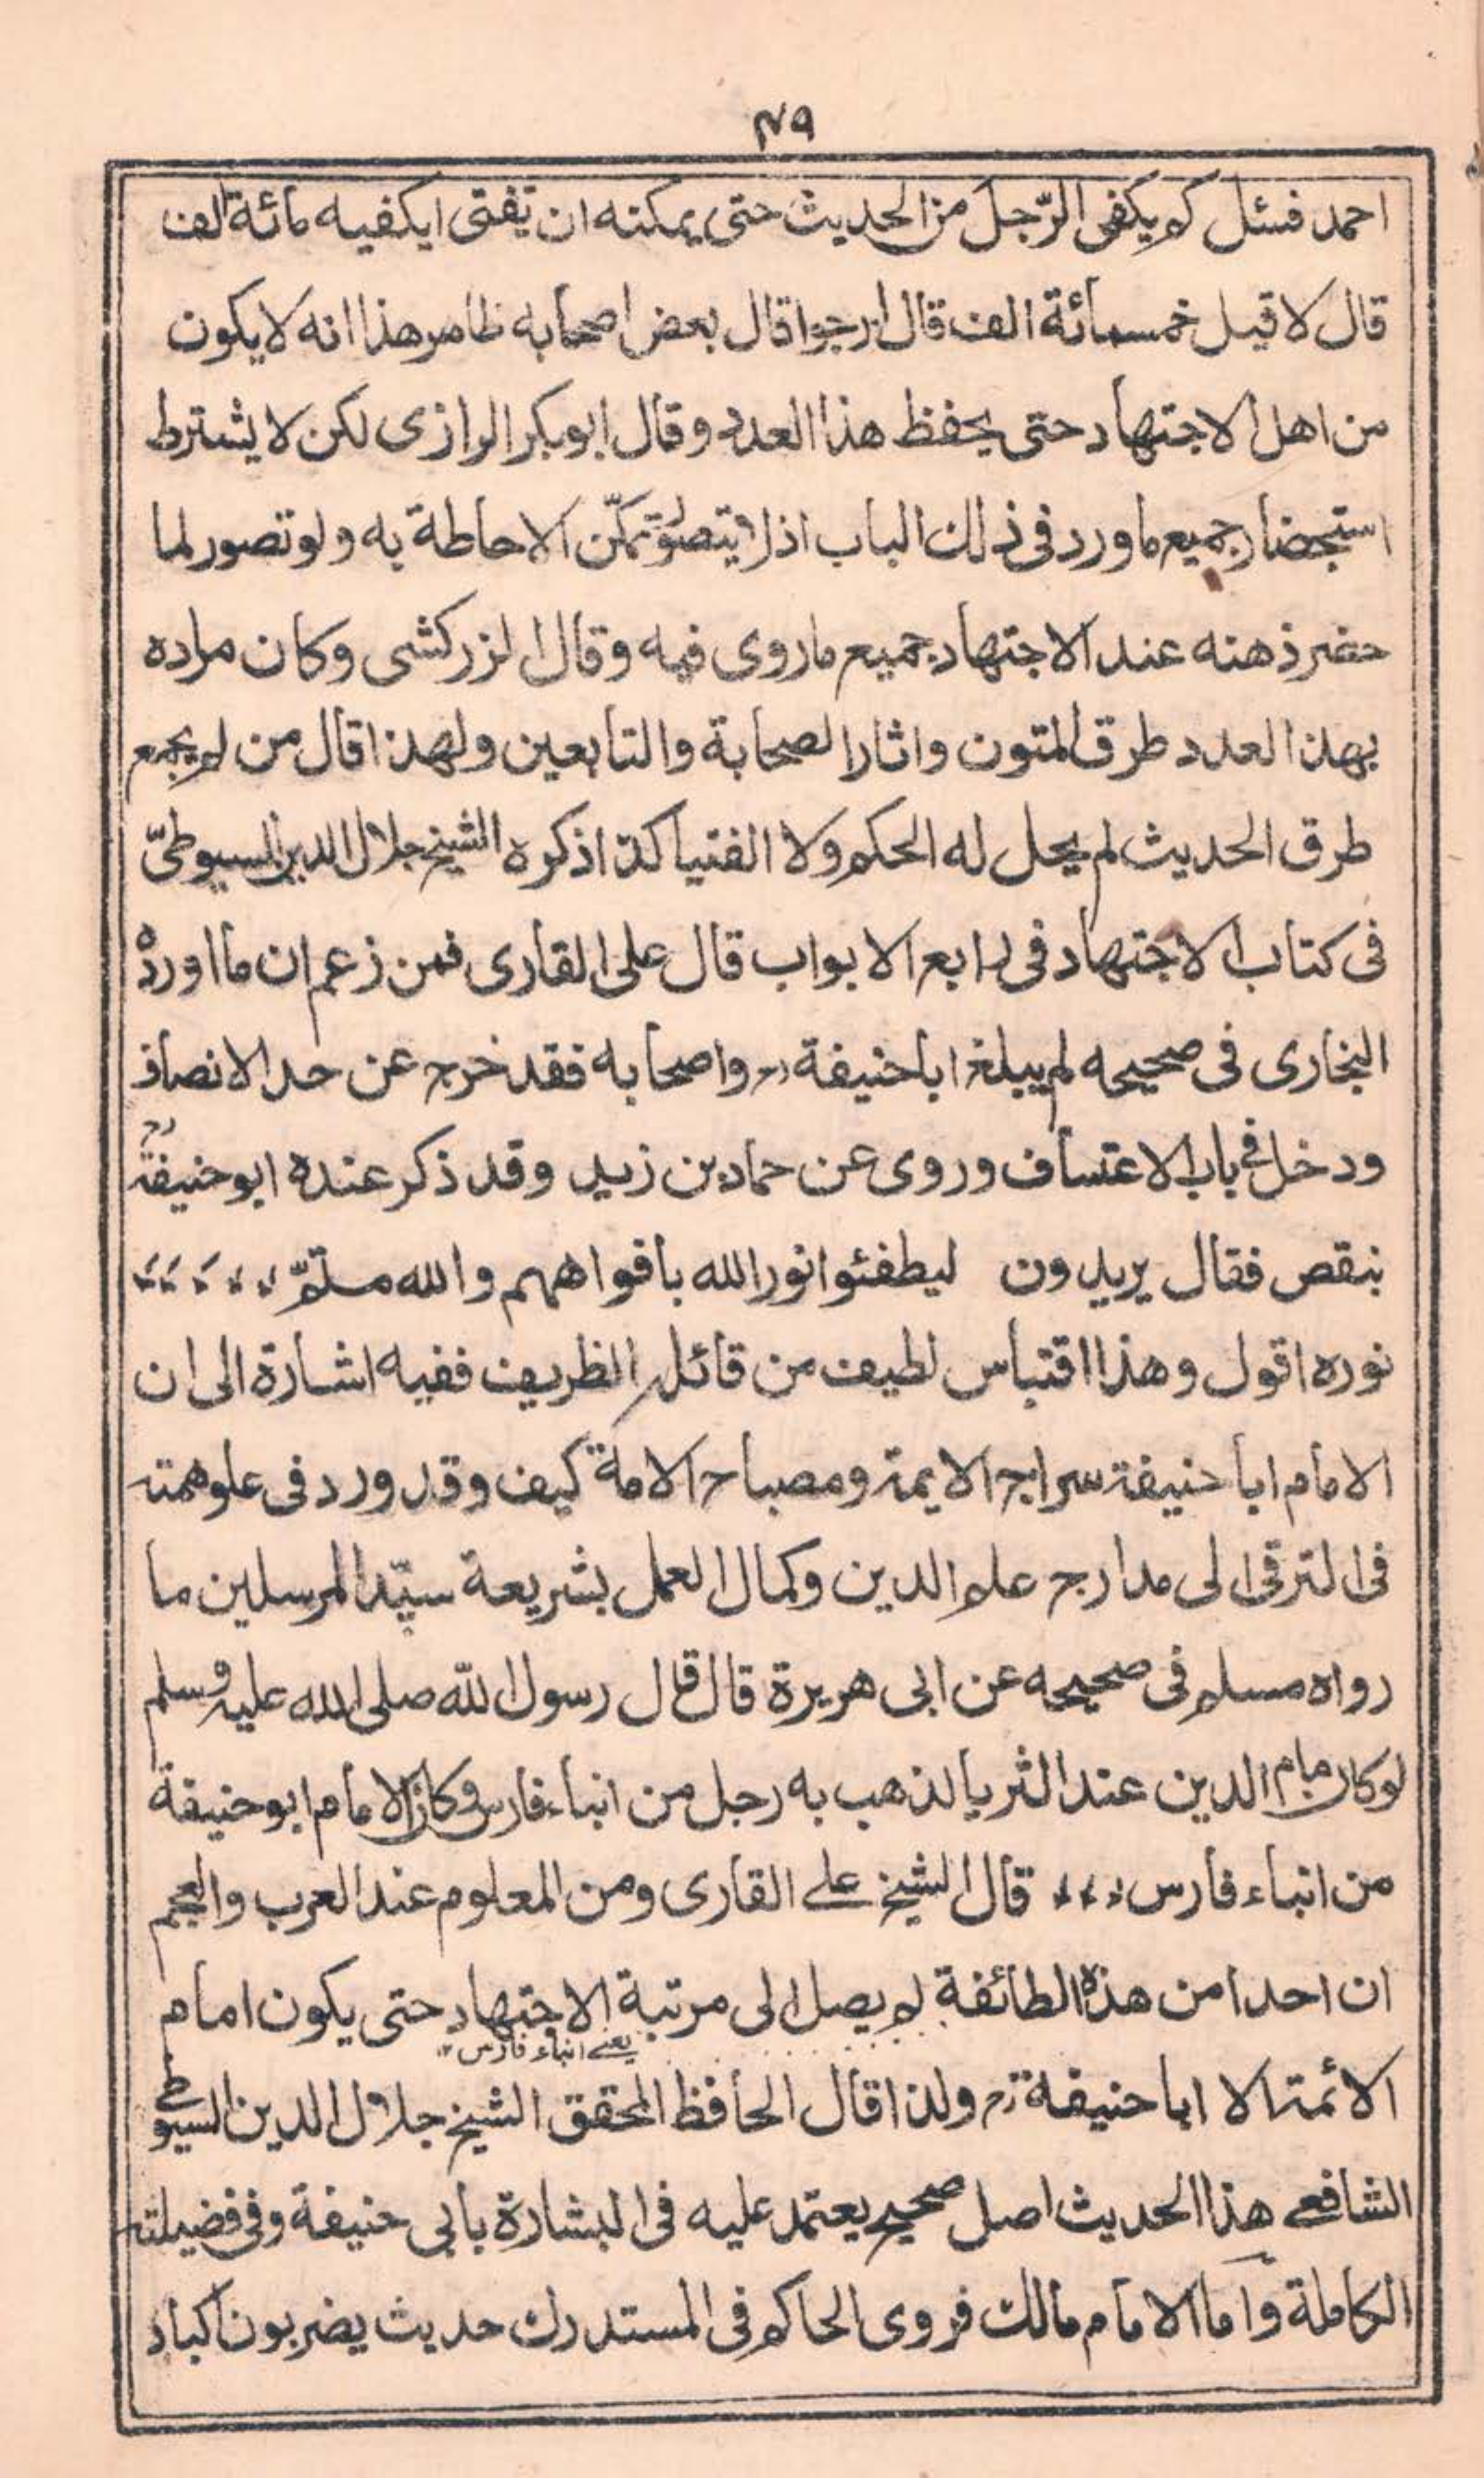 ۴۹
احمد فسئل كم يكفى الرّجل من الحديث حتى يمكنه ان يفتى ايكفيه مائة الف
قال لا قيل خمسمائة الف قال ارجوا قال بعض اصحابه ظاهر هذا انه لا يكون
من اهل الاجتهاد حتى يحفظ هذا العدد وقال ابوبكر الرازى لكن لا يشترط
استحضار جميع ماورد فى ذلك الباب اذ لا يتصوّر تمكّن الاحاطة به ولو تصور لما
حضر ذهنه عند الاجتهاد جميع ماروى فيه وقال الزركشى وكان مراده
بهذا العدد طرق المتون واثار الصحابة والتابعين ولهذا قال من لم يجمع
طرق الحديث لم يحل له الحكم ولا الفتيا كذا ذكره الشيخ جلال الدين السيوطىّ
فى كتاب الاجتهاد فى رابع الابواب قال على القارى فمن زعم ان ما اورده
البخارى فى صحيحه لم يبلغ اباحنيفة رح واصحابه فقد خرج عن حد الانصاف
ودخل فى باب الاعتساف وروى عن حماد بن زيد وقد ذكر عنده ابوحنيفة رح
بنقص فقال يريدون ليطفئوا نور الله بافواههم والله متمّ
نوره اقول وهذا اقتباس لطيف من قائل الظريف ففيه اشارة الى ان
الامام ابا حنيفة سراج الايمة ومصباح الامة كيف وقد ورد فى علو همته
فى الترقى الى مدارج علم الدين وكمال العمل بشريعة سيّد المرسلين ما
رواه مسلم فى صحيحه عن ابى هريرة قال قال رسول اللّه صلى الله عليه وسلم
لوكان الدين عند الثريا لذهب به رجل من ابناء فارس وكان الامام ابوحنيفة
من ابناء فارس قال الشيخ على القارى ومن المعلوم عند العرب والعجم
ان احدا من هذه الطائفة لم يصل الى مرتبة الاجتهاد حتى يكون امام
يعنے ابناء فارس
الائمة الا ابا حنيفة رح ولذا قال الحافظ المحقق الشيخ جلال الدين السيوطے
الشافعے هذا الحديث اصل صحيح يعتمد عليه فى البشارة بابى حنيفة وفى فضيلته
الكاملة واما الامام مالك فروى الحاكم فى المستدرك حديث يضربون اكباد